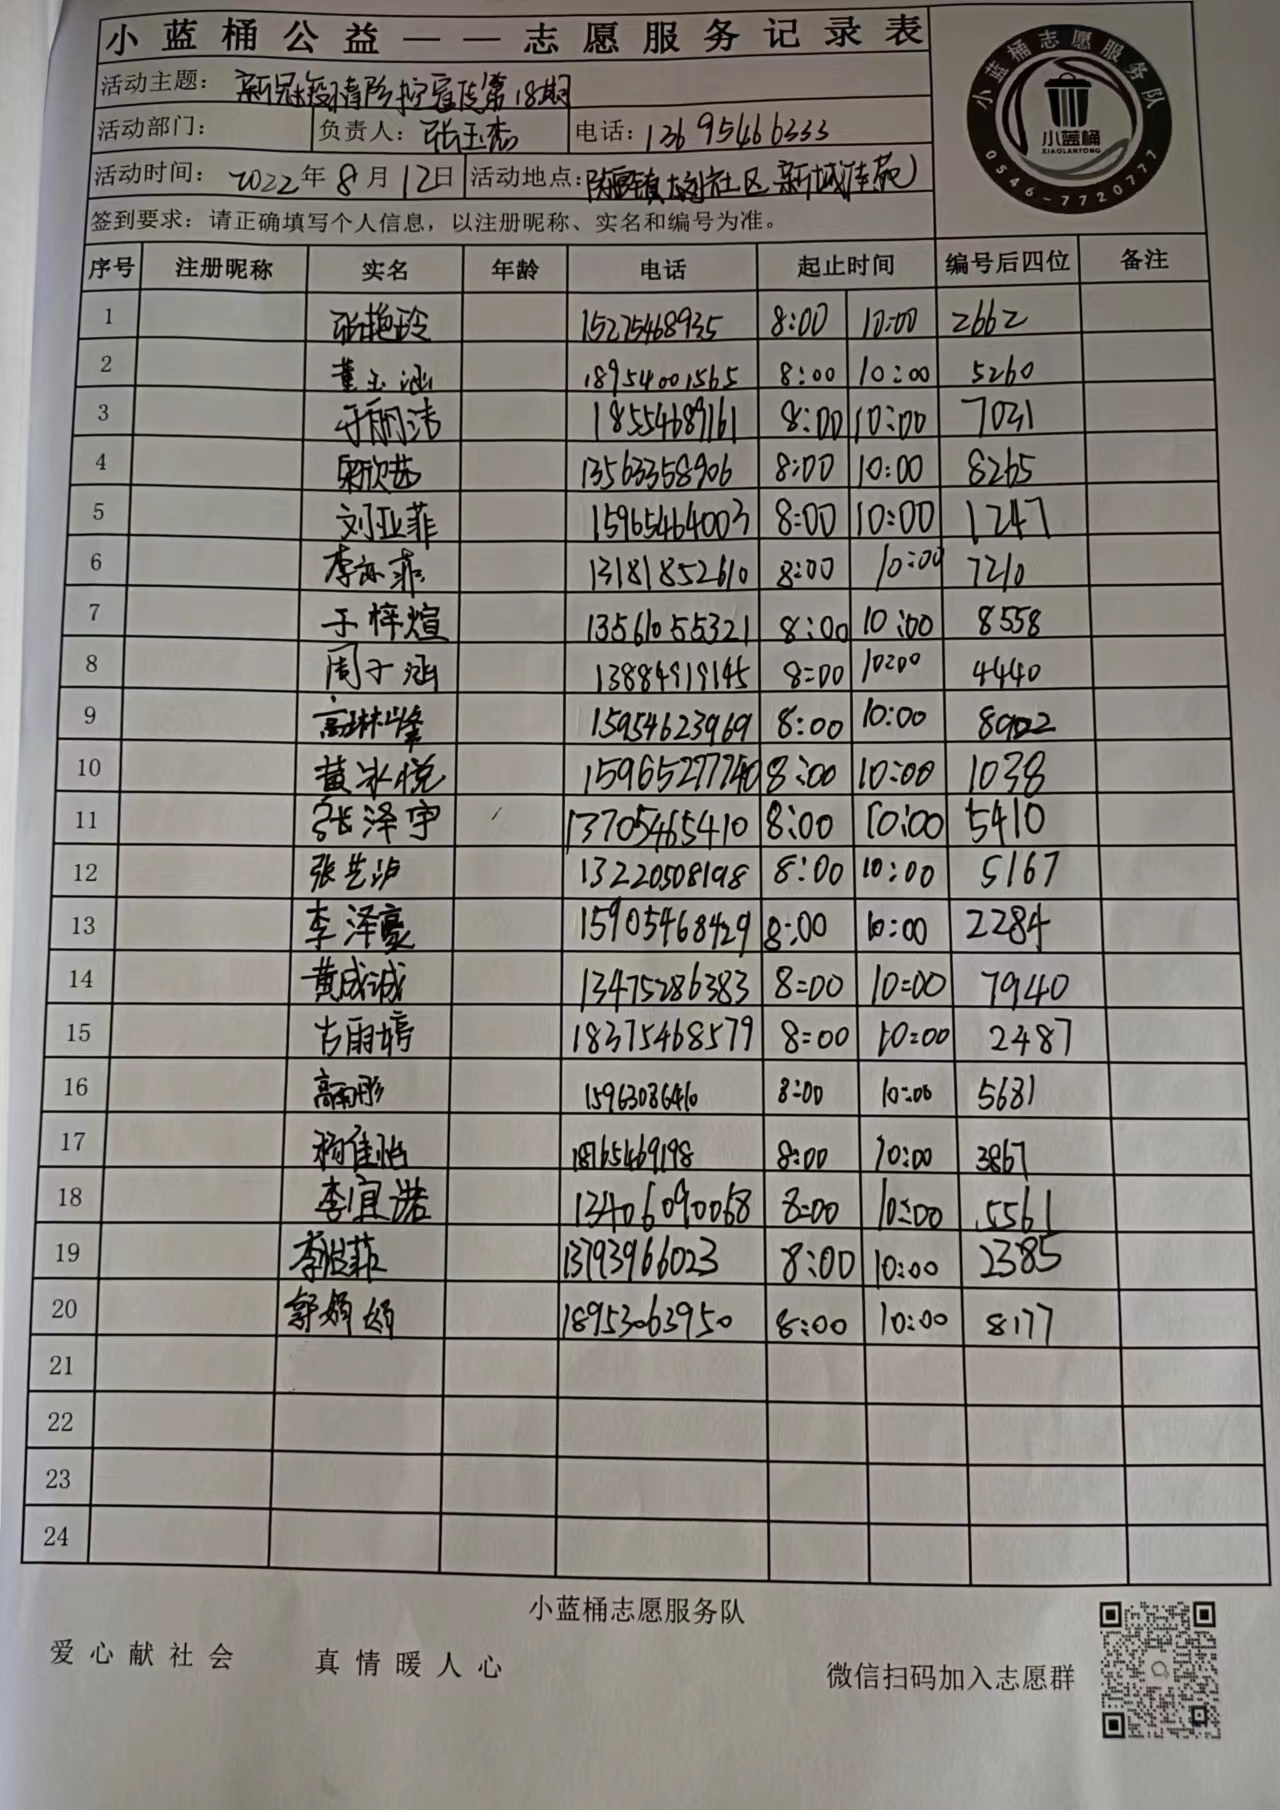 小蓝桶公益——志愿服务记录表
小蓝桶志愿服务队
小蓝桶
XIAOLANTONG
0546-7720777
活动主题: 新冠疫情防控宣传第18期
活动部门: 负责人: 张玉杰 电话: 13695466333
活动时间: 2022年8月12日 活动地点: 社区新城佳苑
签到要求: 请正确填写个人信息，以注册昵称、实名和编号为准。
序号 注册昵称 实名 年龄 电话 起止时间 编号后四位 备注
1 张艳玲 15275468935 8:00 10:00 2662
2 董玉涵 18954001565 8:00 10:00 5260
3 于雨洁 18554689161 8:00 10:00 7031
4 欣茜 13563358906 8:00 10:00 8265
5 刘亚菲 15965464003 8:00 10:00 1247
6 李亦菲 13181852610 8:00 10:00 7210
7 于梓煊 13561055321 8:00 10:00 8558
8 周子涵 13884919145 8:00 10:00 4440
9 15954623969 8:00 10:00 8902
10 黄冰悦 15965277740 8:00 10:00 1038
11 张泽宇 13705465410 8:00 10:00 5410
12 张艺泸 13220508198 8:00 10:00 5167
13 李泽豪 15905468429 8:00 10:00 2284
14 黄成诚 13475286383 8:00 10:00 7940
15 古雨婷 18375468579 8:00 10:00 2487
16 高雨彤 15963086410 8:00 10:00 5631
17 杨佳怡 18765469198 8:00 10:00 3867
18 李宜诺 13406090068 8:00 10:00 5561
19 李菲 13793966023 8:00 10:00 2385
20 郭娟娟 18953063950 8:00 10:00 8177
21
22
23
24
小蓝桶志愿服务队
爱心献社会 真情暖人心 微信扫码加入志愿群